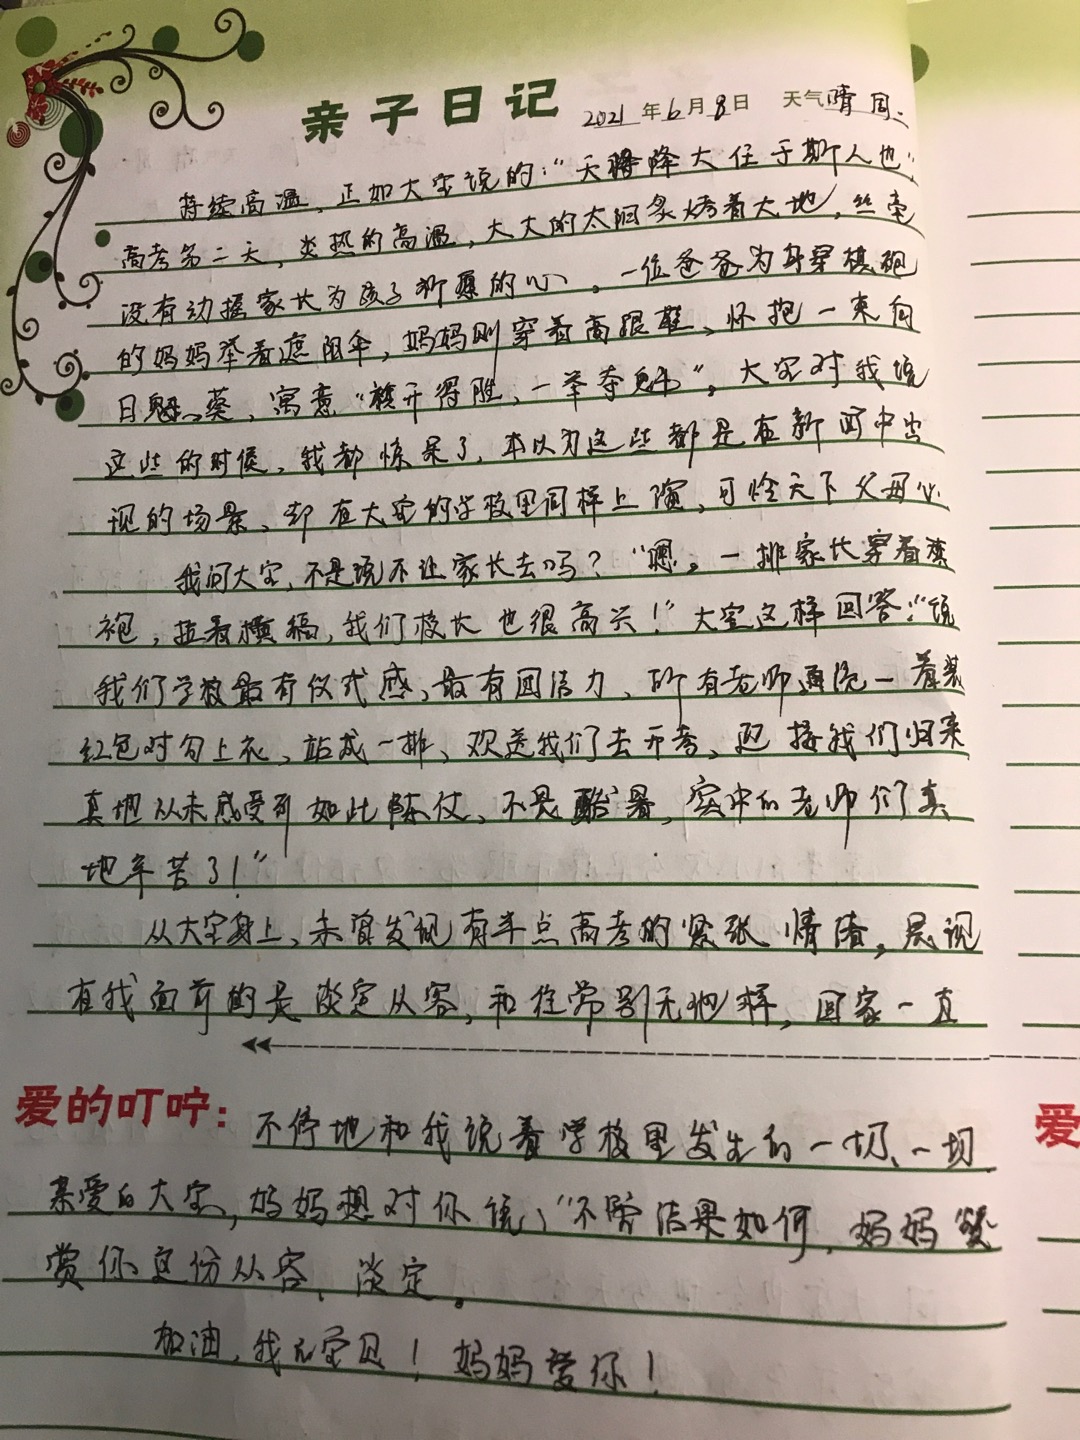 亲子日记 2021年6月8日 天气晴 周二
持续高温，正如大宝说的："天将降大任于斯人也"，
高考第二天，炎热的高温，大大的太阳炙烤着大地，丝毫
没有动摇家长为孩子祈愿的心。一位爸爸为身穿棋袍
的妈妈举着遮阳伞，妈妈则穿着高跟鞋、怀抱一束向
日葵，寓意"旗开得胜，一举夺魁"。大宝对我说
这些的时候，我都惊呆了，本以为这些都是在新闻中出
现的场景，却在大宝的学校里同样上演，可怜天下父母心
我问大宝，不是说不让家长去吗？"嗯。一排家长穿着旗
袍，拉着横福，我们校长也很高兴！"大宝这样回答："说
我们学校最有仪式感，最有回活力，所有老师通统一着装
红色对勾上衣、站成一排、欢送我们去开考、迎接我们归来
真地从未感受到如此阵仗、不畏酷暑，实中的老师们真
地辛苦了！"
从大宝身上，未曾发现有半点高考的紧张情绪，展现
在我面前的是淡定从容，和往常别无他样，回家一直
爱的叮咛：不停地和我说着学校里发生的一切、一切
亲爱的大宝，妈妈想对你说，"不管结果如何，妈妈赞
赏你这份从容、淡定。
加油，我大宝贝！妈妈爱你！
爱